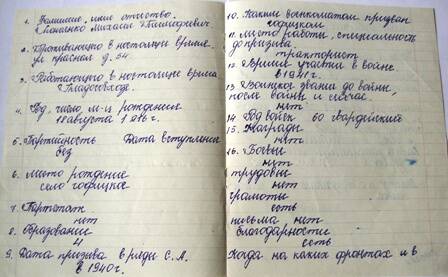 1. Фамилие, имя отчество.
Михаил
2. Проживающего в настоящую время.
ул Красная д. 54
3. Работающего в настоящую время
4. Год, число м-ц рождения
18 августа 1916 г.
5. Партийность Дата вступления
без
6. Место рождение
село Софицкое
7. Партстаж
нет
8. Образование
4
9. Дата призыва в ряды С. А.
в 1940 г.
10. Каким военкоматом призван
11. Место работы, специальность
до призыва.
тракторист
12. Время участия в войне
в 1941 г.
13 Воинское звание до войны,
после войны и сейчас.
нет
14 Род войск 60 гвардейский
15. Награды
нет
16. Боевые
нет
трудовы
нет
грамоты
есть
письма нет
благодарности
есть
Когда на каких фронтах и в